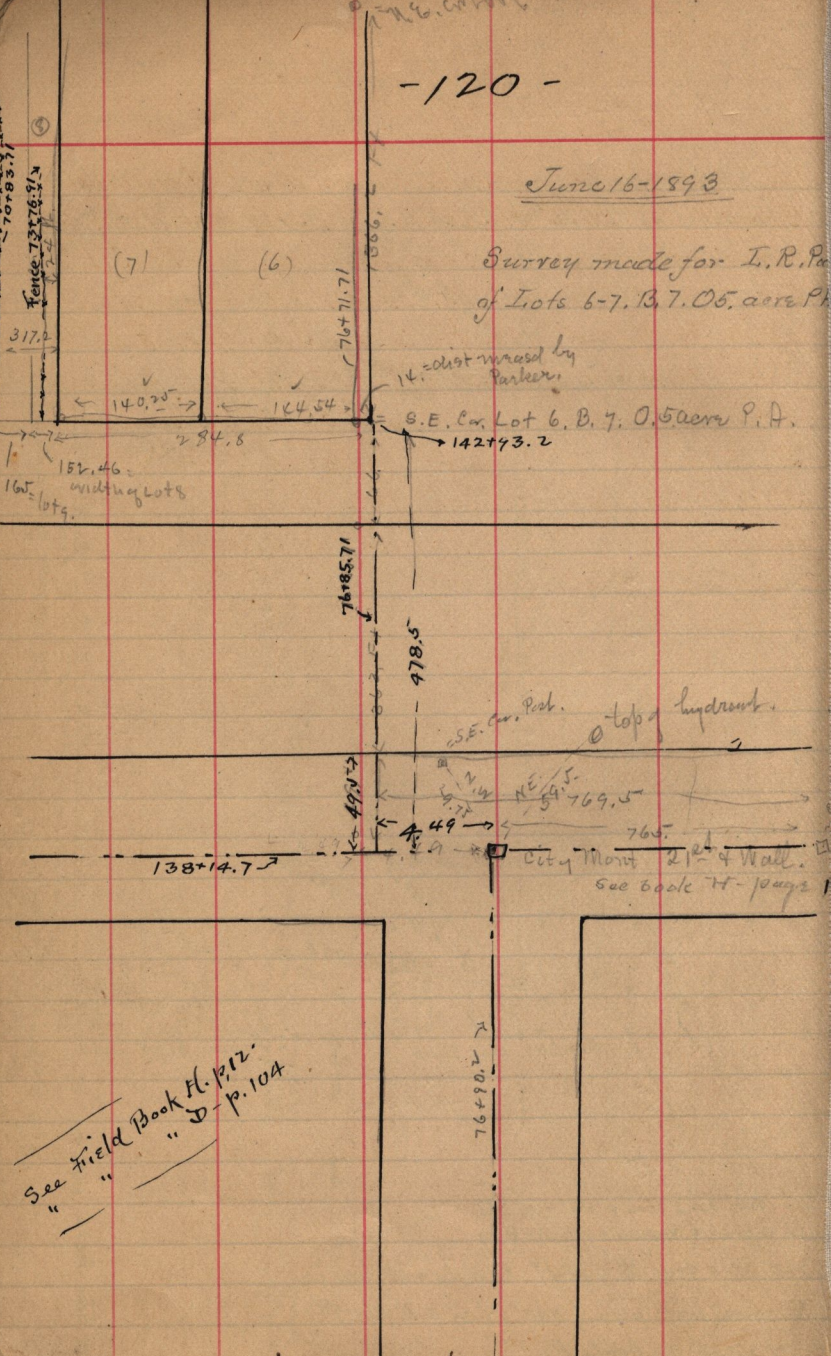 = N.E. corner
-120-
June 16-1893
Survey made for I.R.
of Lots 6-7. B.7. O5. acre
(8)
70+83.71
Fence 73+76.91
(7)
(6)
76+71.71
317.2
14.=dist measd by
Parker.
140.25
144.54
S.E. Cor. Lot 6. B. 7. O.5 acre P.A.
284.8
142+93.2
152.46=
width of Lot 8
165=
lot 9.
76+85.71
478.5
S.E. Cor. Post.
top of hydrant.
49.5
N.E.
59.5
769.5
4.49
765.
138+14.7
City Mont 21st & Wall.
See book H- page 1
76+90.2
See Field Book H. p.12.
" " " D- p.104